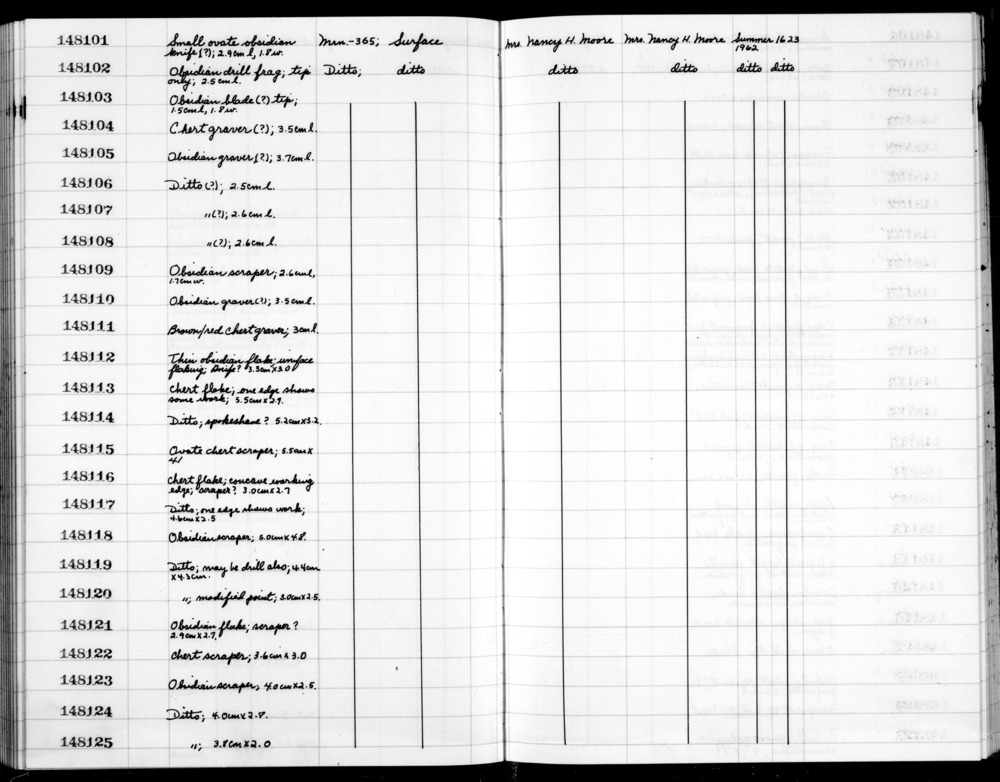 148101 Small ovate obsidian Mrn.-365; Surface Mrs. Nancy H. Moore Mrs. Nancy H. Moore Summer 1623
knife (?); 2.9cm l, 1.8 w. 1962
148102 Obsidian drill frag; tip Ditto; ditto ditto ditto ditto ditto
only; 2.5 cm l.
148103 Obsidian blade (?) tip;
1.5cm l, 1.8 w.
148104 Chert graver (?); 3.5cm l.
148105 Obsidian graver (?); 3.7cm l.
148106 Ditto (?); 2.5cm l.
148107 " (?); 2.6cm l.
148108 " (?); 2.6cm l.
148109 Obsidian scraper; 2.6cml,
1.7cm w.
148110 Obsidian graver (?); 3.5cm l.
148111 Brown/red Chert graver; 3cm l.
148112 Thin obsidian flake; uniface
flaking; knife? 3.3cm X3.0
148113 Chert flake; one edge shows
some work; 5.5cm X 2.9.
148114 Ditto; spokeshave? 5.2cm X3.2.
148115 Ovate chert scraper; 5.5cm X
4.1
148116 Chert flake; concave working
edge; scraper? 3.0cm X 2.7
148117 Ditto; one edge shows work;
4.6cm X 2.5
148118 Obsidian scraper; 5.0cm X 4.8.
148119 Ditto; may be drill also; 4.4cm
X 4.3cm.
148120 "; modified point; 3.0cm X2.5.
148121 Obsidian flake; scraper?
2.9cm X 2.7.
148122 Chert scraper; 3.6cm X 3.0
148123 Obsidian scraper; 4.0cm X2.5.
148124 Ditto; 4.0cm X 2.8.
148125 "; 3.8cm X 2.0